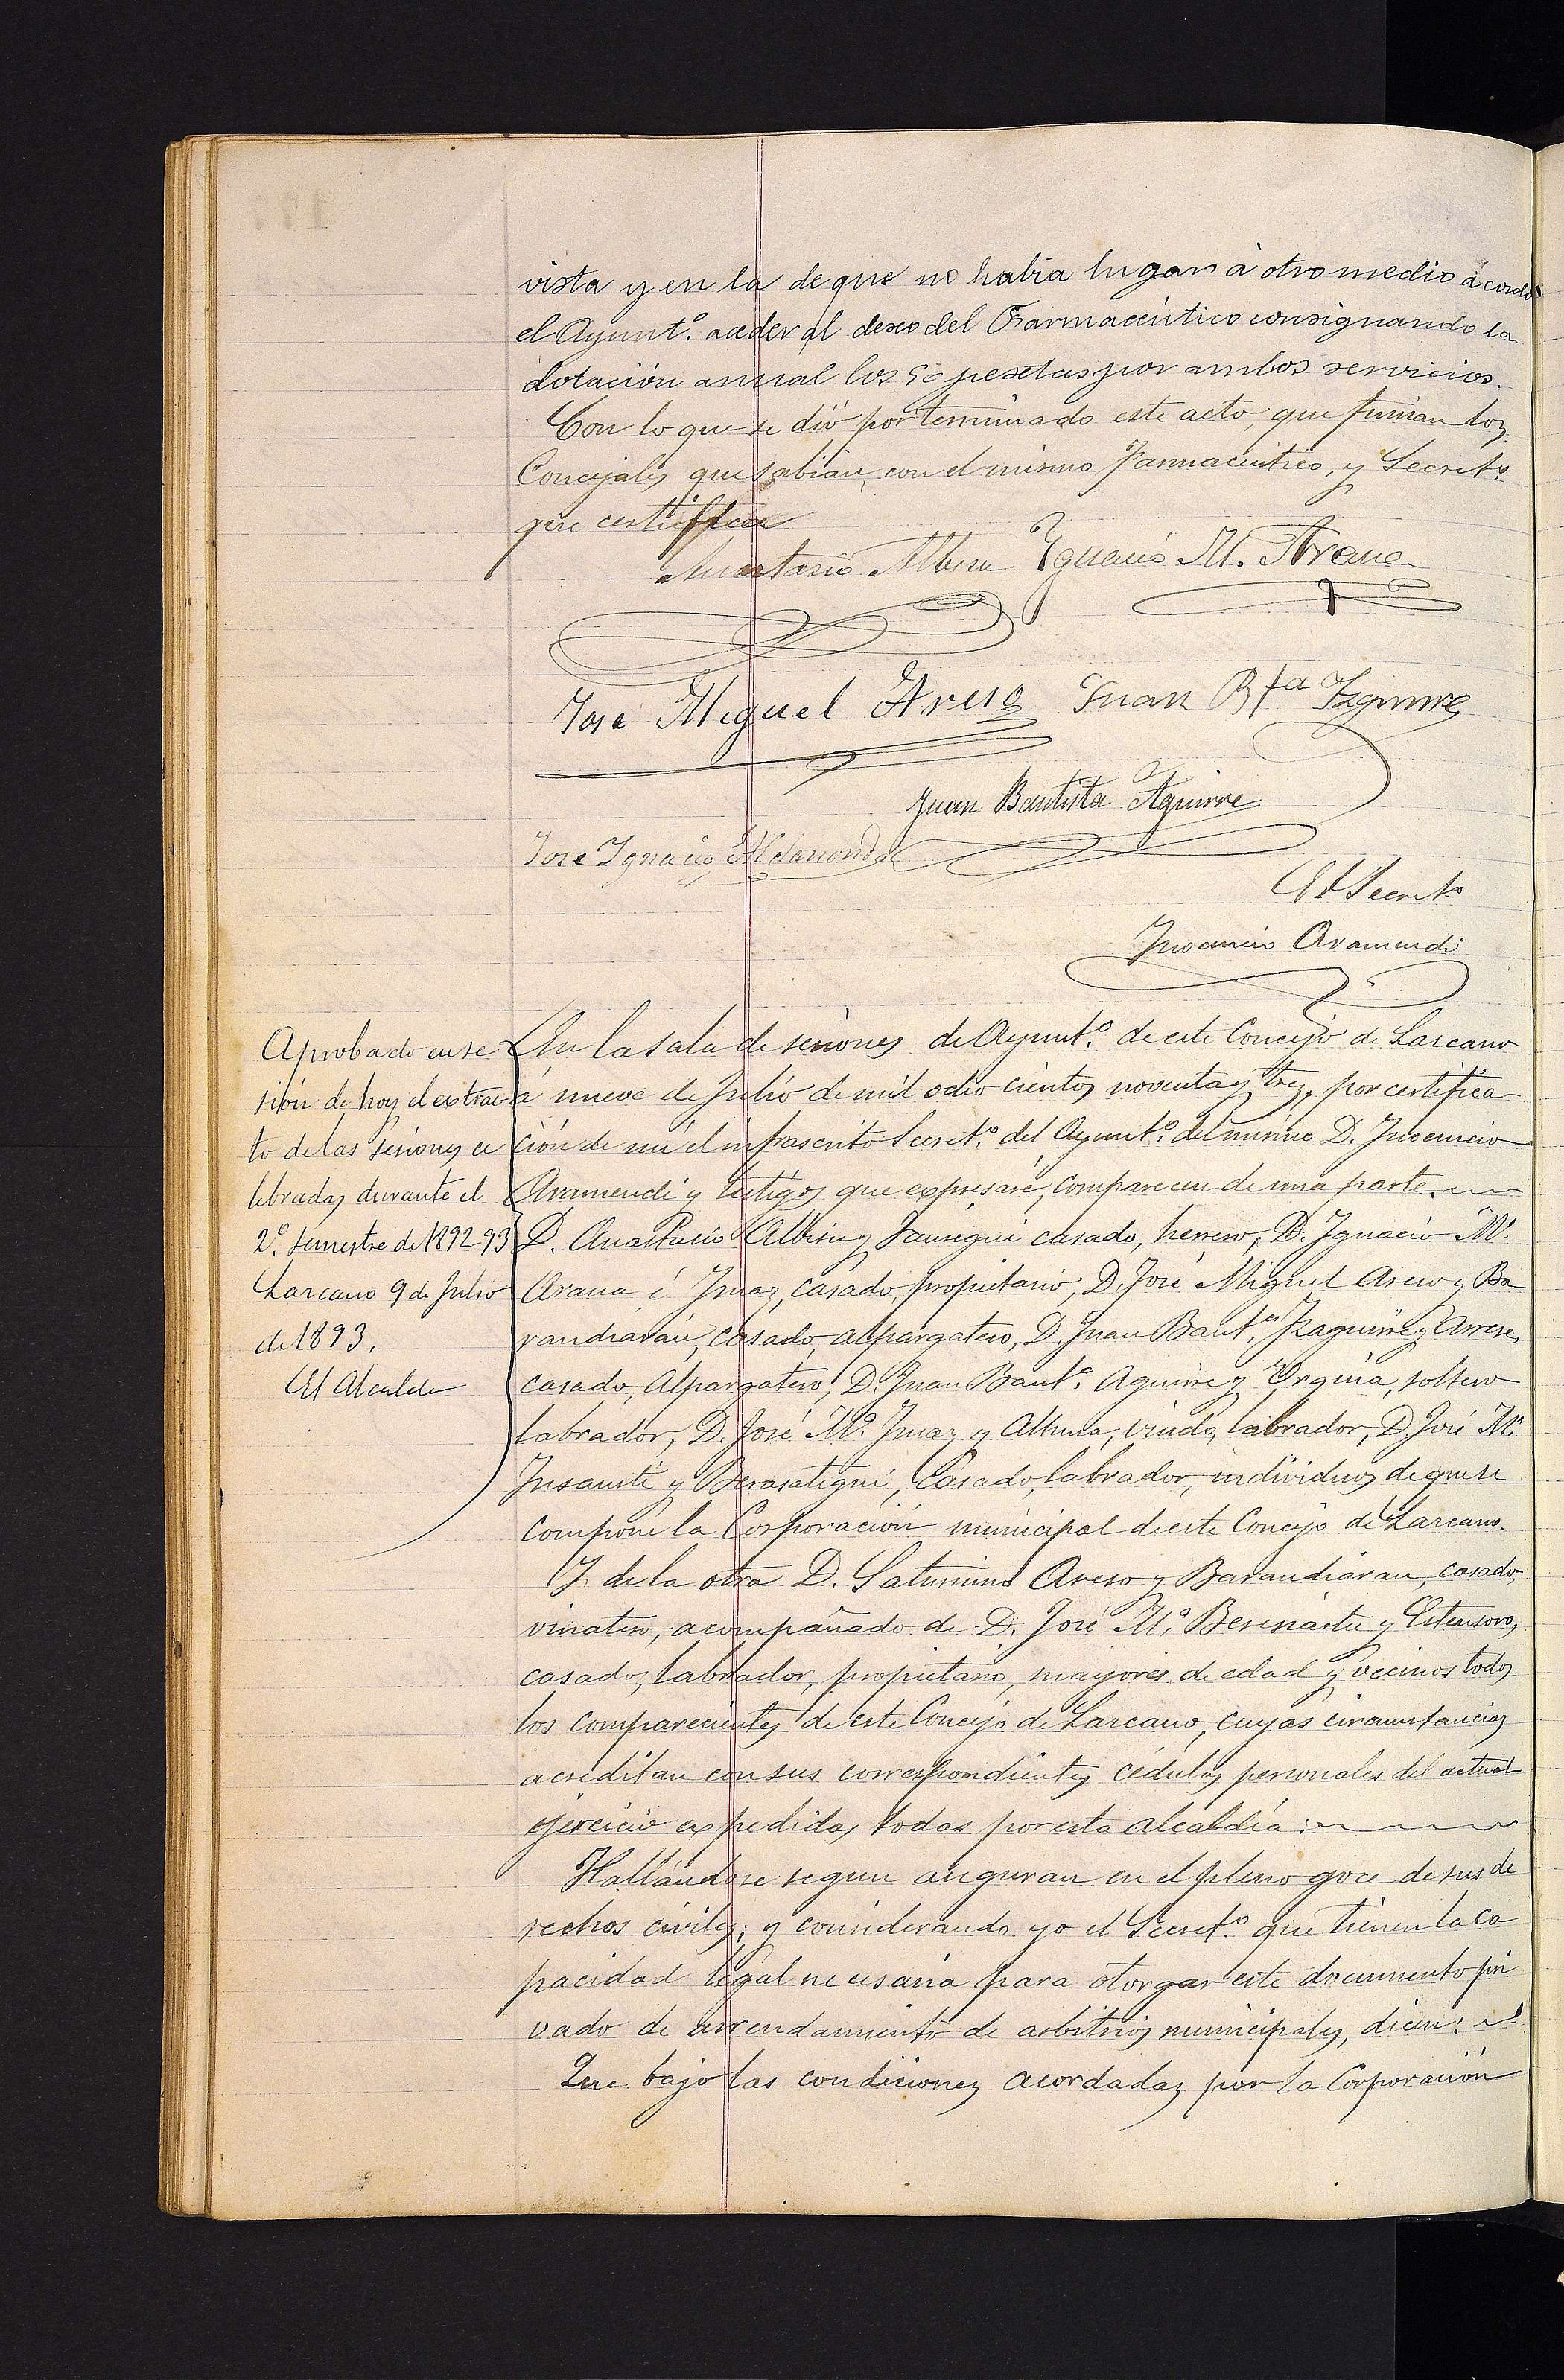 vista y en la de que no habia lugar à otro medio acordó
el Ayuntº. acceder al deseo del Farmacéutico consignando la
dotación annal los 50 pesetas por ambos servicios.
Con lo que se dió por terminado este acto, que firman los
Concejales que sabian, con el mismo Farmacéutico, y Secretº.
que certifica
Anastasio Albisu Ygnacio M. Arana
Jose Miguel Areso Juan Bta Izaguirre
Juan Bautista Aguirre
Jose Ygnacio
El Secretº
Inocencio Aramendi
Aprobado en se
sión de hoy el extrac
to de las sesiones ce
lebradas durante el
2º. semestre de 1892-93
Lazcano 9 de Julio
de 1893.
El Alcalde
En la sala de sesiones de Ayuntº. de este Concejo de Lazcano
á nueve de Julio de mil ocho cientos noventa y tres, por certifica
ción de mi el infrascrito Secretº. del Ayuntº. del mismo D. Inocencio
Aramendi y testigos que expresaré, comparecen de una parte.
D. Anastasio Albisu y Jauregui casado, herrero, D. Ignacio Mª.
Arana é Imaz, casado, propietario, D. José Miguel Areso y Ba
randiarán, casado, alpargatero, D. Juan Bautª. Izaguirre y Arrese,
casado, Alpargatero, D. Juan Bautª. Aguirre y Urquia, soltero
labrador, D. José Mª. Imaz y Albisua, viudo, labrador, D. José Mª.
Insausti y Berasategui, Casado, labrador, individuos de que se
compone la Corporación municipal de este Concejo de Lazcano.
Y de la otra D. Saturnino Areso y Barandiaran, casado,
vinatero, acompañado de D. José Mª. Beresiartu y Estensoro,
casado, labrador, propietario, mayores de edad y vecinos todos
los comparecientes de este Concejo de Lazcano, cuyas circunstancias
acreditan con sus correspondientes cédulas personales del actual
ejercicio expedidas todas por esta alcaldía:
Hallándose segun aseguran en el pleno goce de sus de
rechos civiles; y considerando yo el Secretº. que tienen la ca
pacidad legal necesaria para otorgar este documento pri
vado de arrendamiento de arbitrios municipales, dicen:
Que bajo las condiciones acordadas por la Corporación